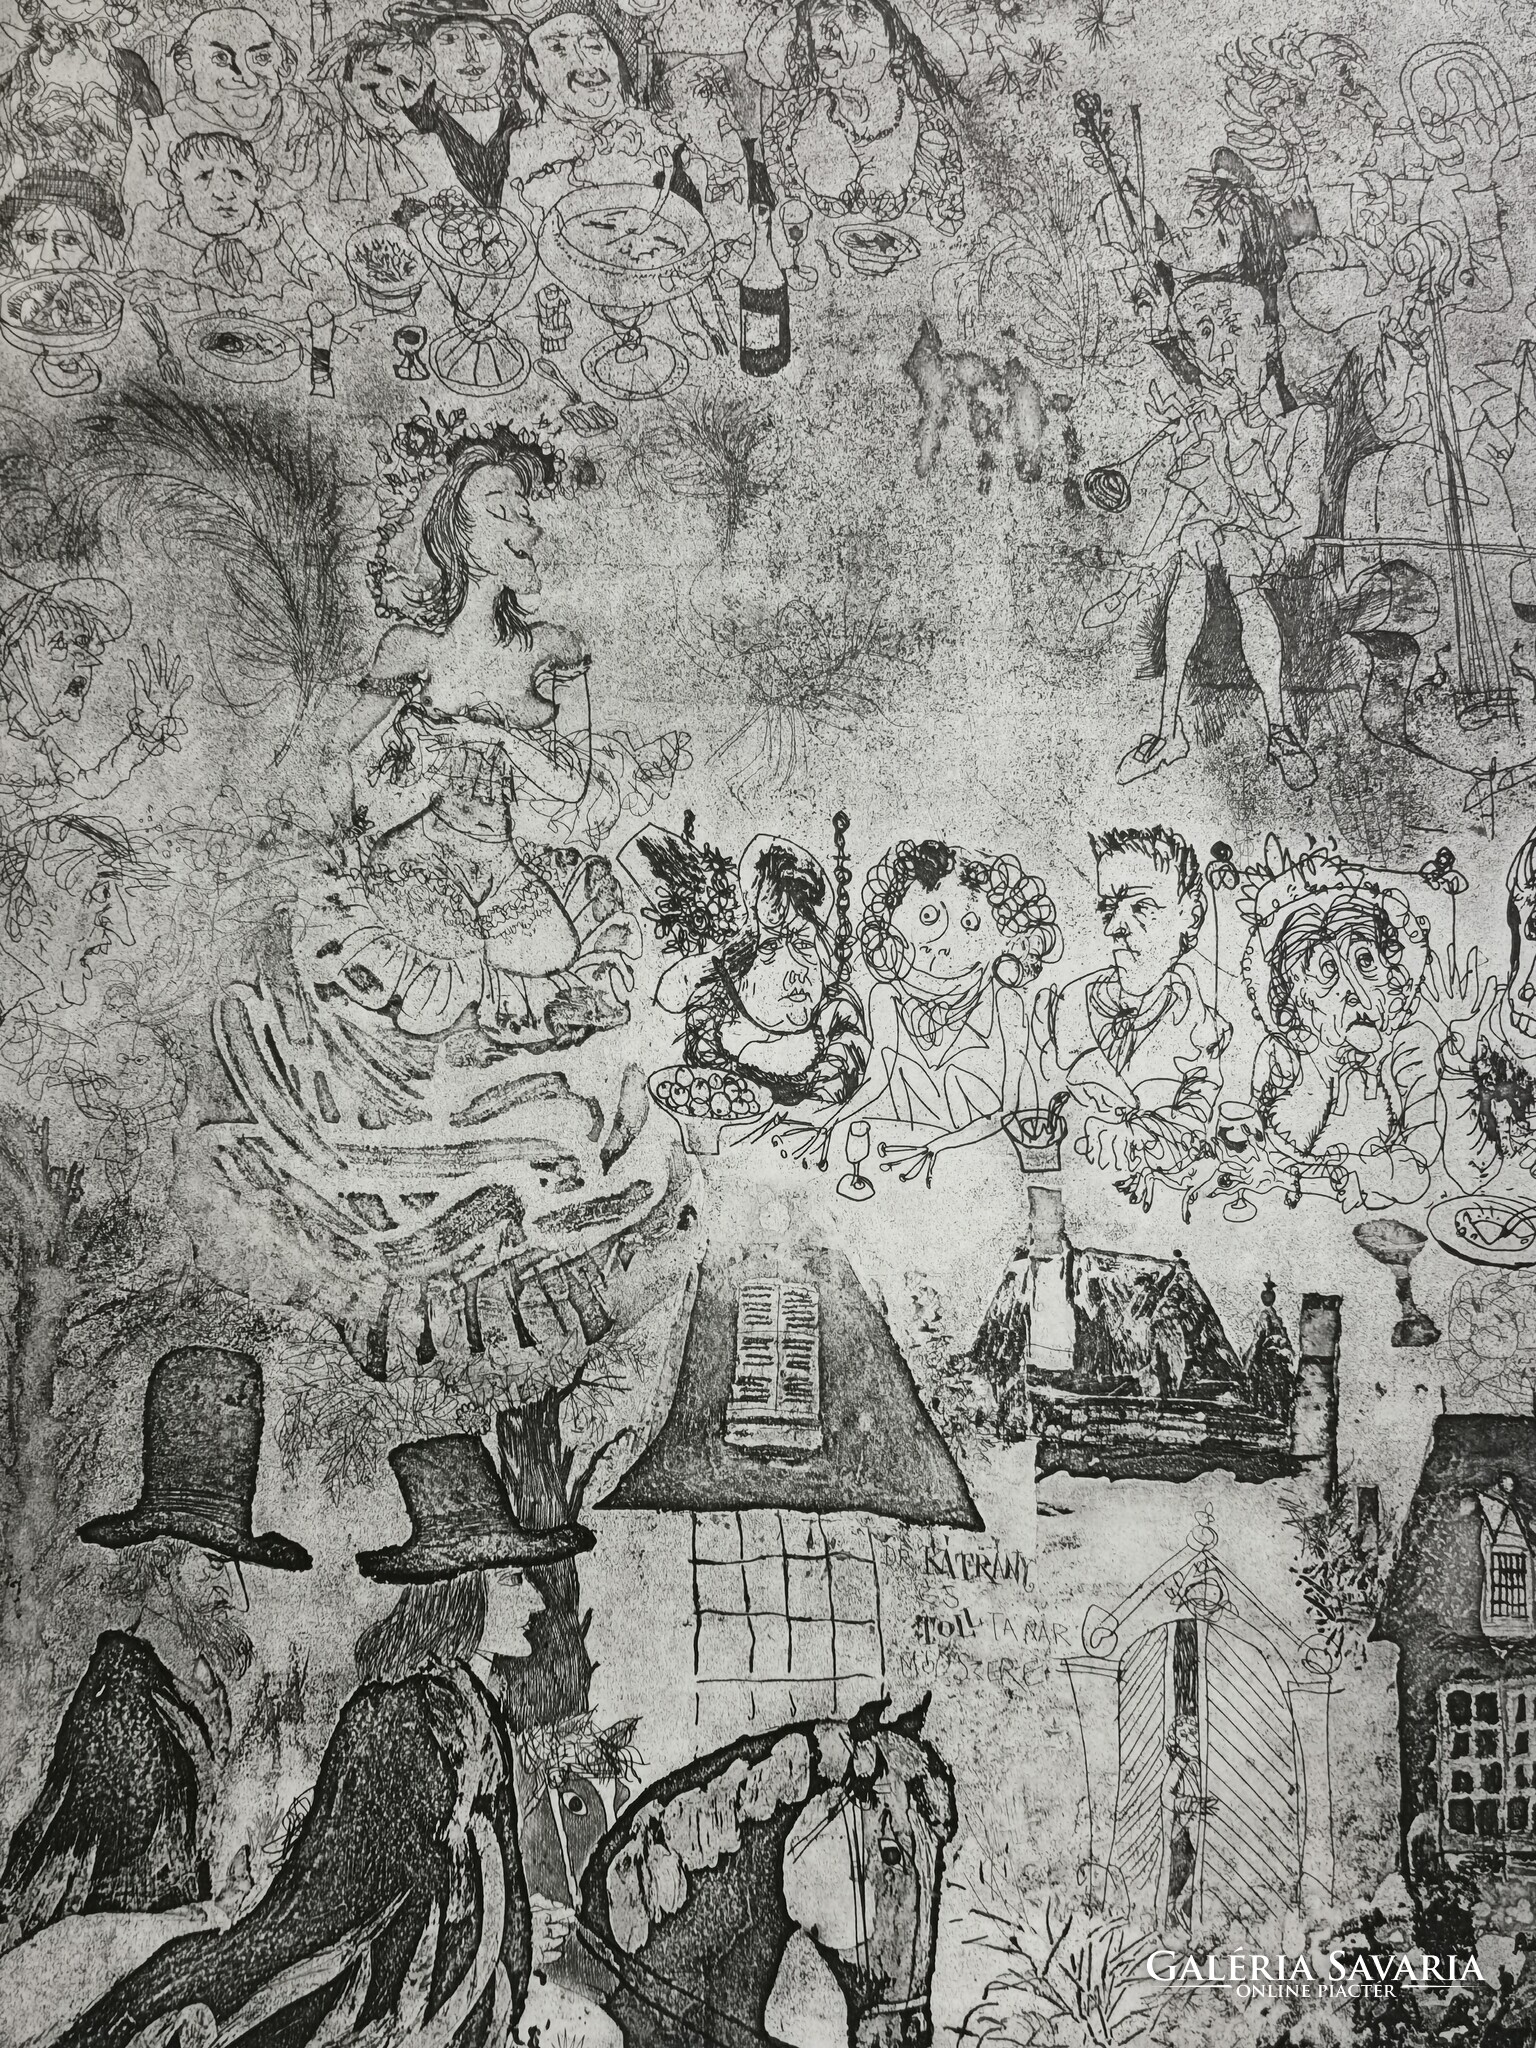 DR KÁTRÁNY
ÉS
TOLL TANÁR
MÓDSZERE
GALÉRIA SAVARIA
ONLINE PIACTÉR